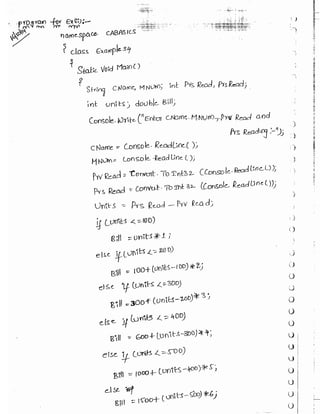 Program for Ex5:-
namespace CABASICS
{ class Example34
{
Static Void Main()
{
String CName, MNum; int Prs Read, Prs Read;
int units; double Bill;
Console.Write("Enter CName, MNum, Prv Read and
Prs Reading:-");
CName = Console.ReadLine();
MNum = Console.ReadLine();
Prv Read = Convert.ToInt32 (Console.ReadLine());
Prs Read = Convert.ToInt32 (Console.ReadLine());
Units = Prs Read - Prv Read;
if (units <=100)
Bill = units * 1;
else if (units <=200)
Bill = 100+(units-100)*2;
else if (units <=300)
Bill = 300+(units-200)*3;
else if (units <=400)
Bill = 600+(units-300)*4;
else if (units <=500)
Bill = 1000+(units-400)*5;
else
Bill = 1500+(units-500)*6;